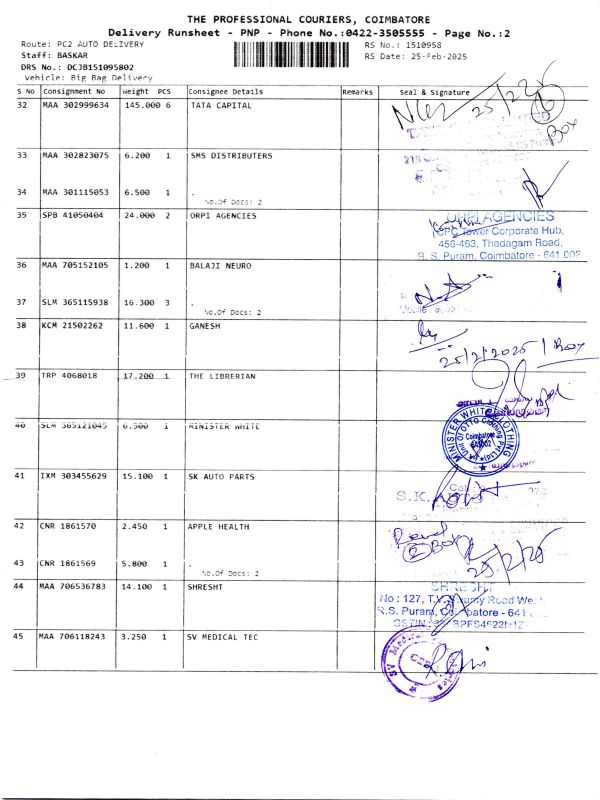 THE PROFESSIONAL COURIERS, COIMBATORE
Delivery Runsheet - PNP - Phone No.:0422-3505555 - Page No.:2
Route: PC2 AUTO DELIVERY RS No.: 1510958
Staff: BASKAR RS Date: 25-Feb-2025
DRS No.: DCJB151095802
Vehicle: Big Bag Delivery
S No Consignment No Weight PCS Consignee Details Remarks Seal & Signature
32 MAA 302999634 145.000 6 TATA CAPITAL
25/2/25
6
Box
33 MAA 302823075 6.200 1 SMS DISTRIBUTERS
34 MAA 301115053 6.500 1 .
No.Of Docs: 2
35 SPB 41050404 24.000 2 ORPI AGENCIES
ORPI AGENCIES
CPC Tower Corporate Hub,
456-463, Thadagam Road,
R. S. Puram, Coimbatore - 641 002
36 MAA 705152105 1.200 1 BALAJI NEURO
37 SLM 365115938 16.300 3 .
No.Of Docs: 2
38 KCM 21502262 11.600 1 GANESH
25/2/2025 1 Box
39 TRP 4068018 17.200 1 THE LIBRERIAN
40 SLM 365121045 6.500 1 MINISTER WHITE
MINISTER WHITE CLOTHING
Unit of OTTO Clothing Pvt Ltd
Coimbatore
641002
41 IXM 303455629 15.100 1 SK AUTO PARTS
S.K.
42 CNR 1861570 2.450 1 APPLE HEALTH
2 Box
25/2/25
43 CNR 1861569 5.800 1 .
No.Of Docs: 2
44 MAA 706536783 14.100 1 SHRESHT
SHRESHT
No : 127, T.V. Samy Road West
R.S. Puram, Coimbatore - 641
GSTIN
45 MAA 706118243 3.250 1 SV MEDICAL TEC
SV Medical